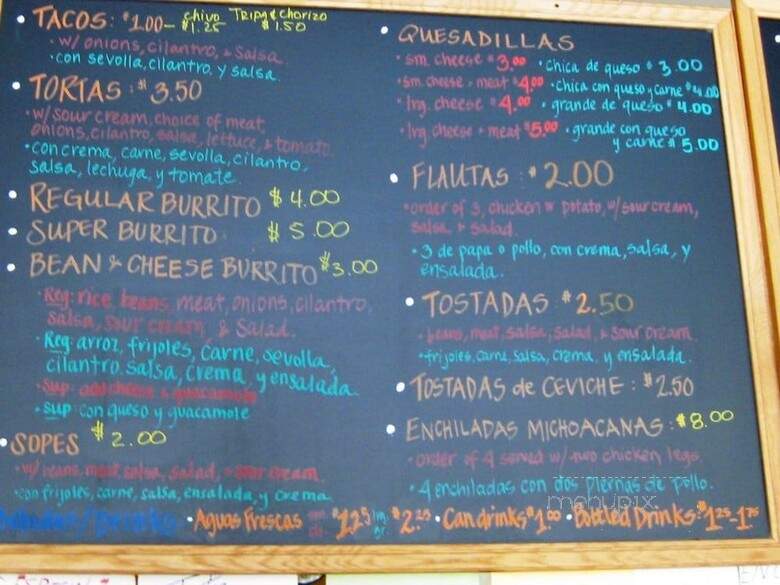 • TACOS: $1.00 - chivo $1.25 Tripa y Chorizo $1.50
• w/ onions, cilantro, & salsa
• con sevolla, cilantro, y salsa.
• TORTAS: $3.50
• w/ sour cream, choice of meat,
onions, cilantro, salsa, lettuce, & tomato
• con crema, carne, sevolla, cilantro,
salsa, lechuga, y tomate.
• REGULAR BURRITO $4.00
• SUPER BURRITO $5.00
• BEAN & CHEESE BURRITO $3.00
• Reg: rice, beans, meat, onions, cilantro,
salsa, sour cream, & salad.
• Reg: arroz, frijoles, carne, sevolla,
cilantro, salsa, crema, y ensalada.
• Sup: add cheese & guacamole
• Sup con queso y guacamole
• SOPES $2.00
• w/ beans, meat, salsa, salad, & sour cream.
• con frijoles, carne, salsa, ensalada, y crema.
• QUESADILLAS
• sm. cheese $3.00 • chica de queso $3.00
• sm. cheese + meat $4.00 • chica con queso y carne $4.00
• lrg. cheese $4.00 • grande de queso $4.00
• lrg cheese + meat $5.00 • grande con queso
y carne $5.00
• FLAUTAS: $2.00
• order of 3, chicken or potato, w/ sour cream,
salsa & salad.
• 3 de papa o pollo, con crema, salsa, y
ensalada.
• TOSTADAS $2.50
• beans, meat, salsa, salad, & sour cream.
• frijoles, carne, salsa, crema, y ensalada.
• TOSTADAS de CEVICHE: $2.50
• ENCHILADAS MICHOACANAS: $8.00
• order of 4 served w/ two chicken legs.
• 4 enchiladas con dos piernas de pollo.
Drinks • Aguas Frescas $1.25 $2.25 • Can drinks $1.00 • Bottled Drinks: $1.25-1.75
menupix